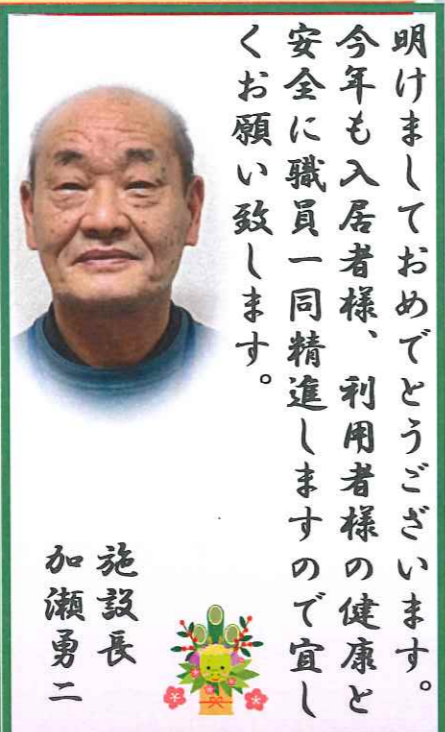 明けましておめでとうございます。
今年も入居者様、利用者様の健康と
安全に職員一同精進しますので宜し
くお願い致します。
施設長
加瀬勇二